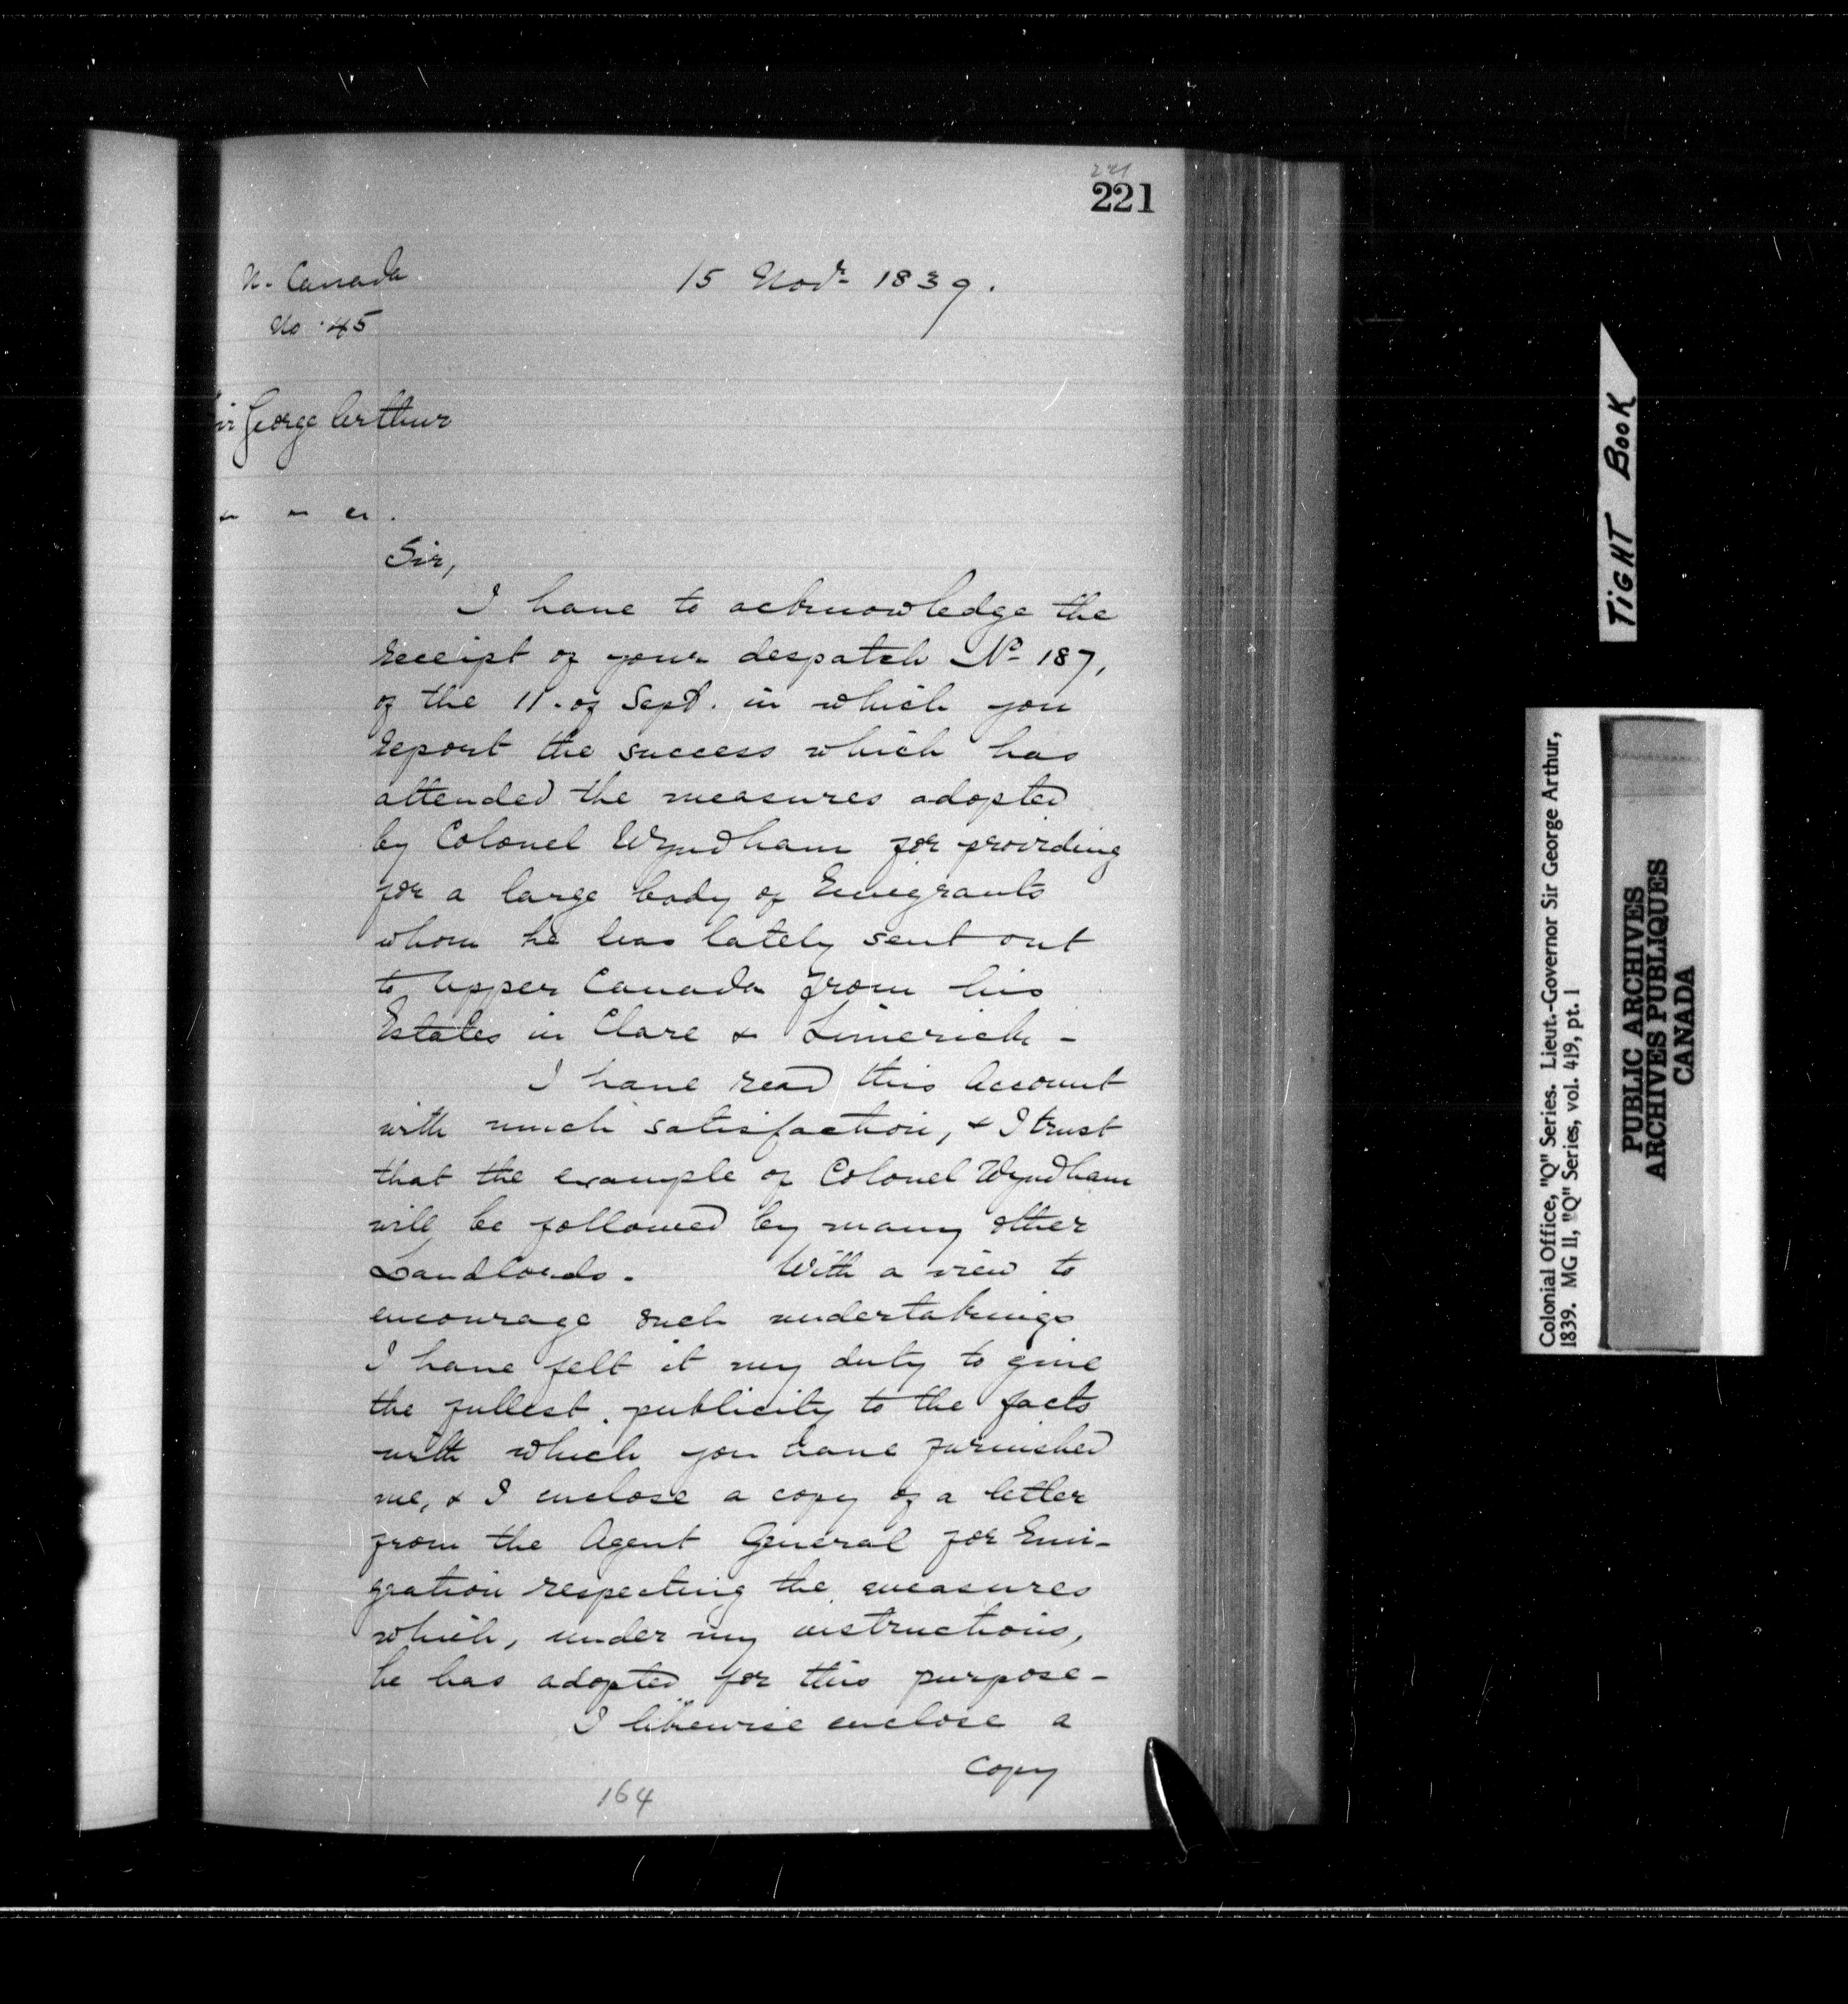 221
221
U. Canada
No. 45
15 Novr. 1839.
ir George Arthur
Sir,
I have to acknowledge the
receipt of your despatch No 187,
of the 11. of Sept. in which you
report the success which has
attended the measures adopted
by Colonel Wyndham for providing
for a large body of Emigrants
whom he has lately sent out
to Upper Canada from his
Estates in Clare & Limerick -
I have read this Account
with much satisfaction, & I trust
that the example of Colonel Wyndham
will be followed by many other
Landlords. With a view to
encourage such undertakings
I have felt it my duty to give
the fullest publicity to the facts
with which you have furnished
me, & I enclose a copy of a letter
from the Agent General for Emi-
gration respecting the measures
which, under my instructions,
he has adopted for this purpose -
I likewise enclose a
Copy
164
TIGHT BOOK
Colonial Office, "Q" Series. Lieut.-Governor Sir George Arthur,
1839. MG 11, "Q" Series, vol. 419, pt. 1
PUBLIC ARCHIVES
ARCHIVES PUBLIQUES
CANADA